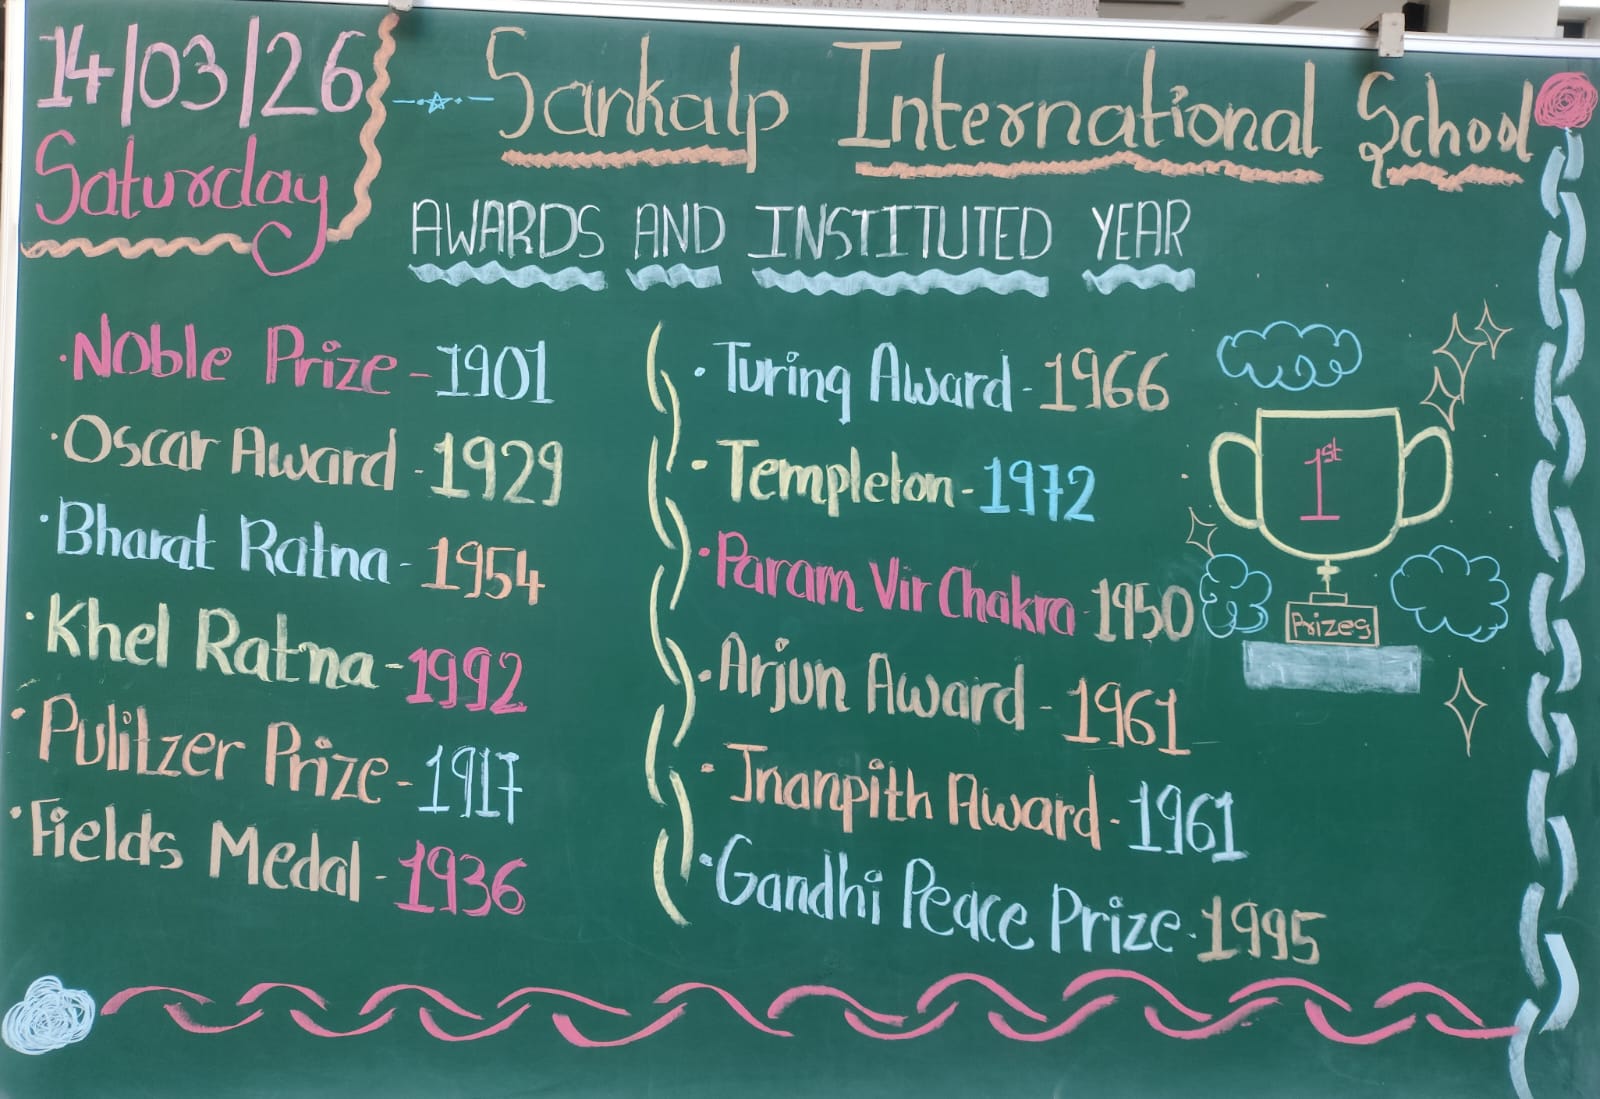 14/03/26
Saturday
Sankalp International School
AWARDS AND INSTITUTED YEAR
·Noble Prize - 1901
·Oscar Award - 1929
·Bharat Ratna - 1954
·Khel Ratna - 1992
·Pulitzer Prize - 1917
·Fields Medal - 1936
·Turing Award - 1966
·Templeton - 1972
·Param Vir Chakra 1950
·Arjun Award - 1961
·Jnanpith Award - 1961
·Gandhi Peace Prize - 1995
1st
Prizes